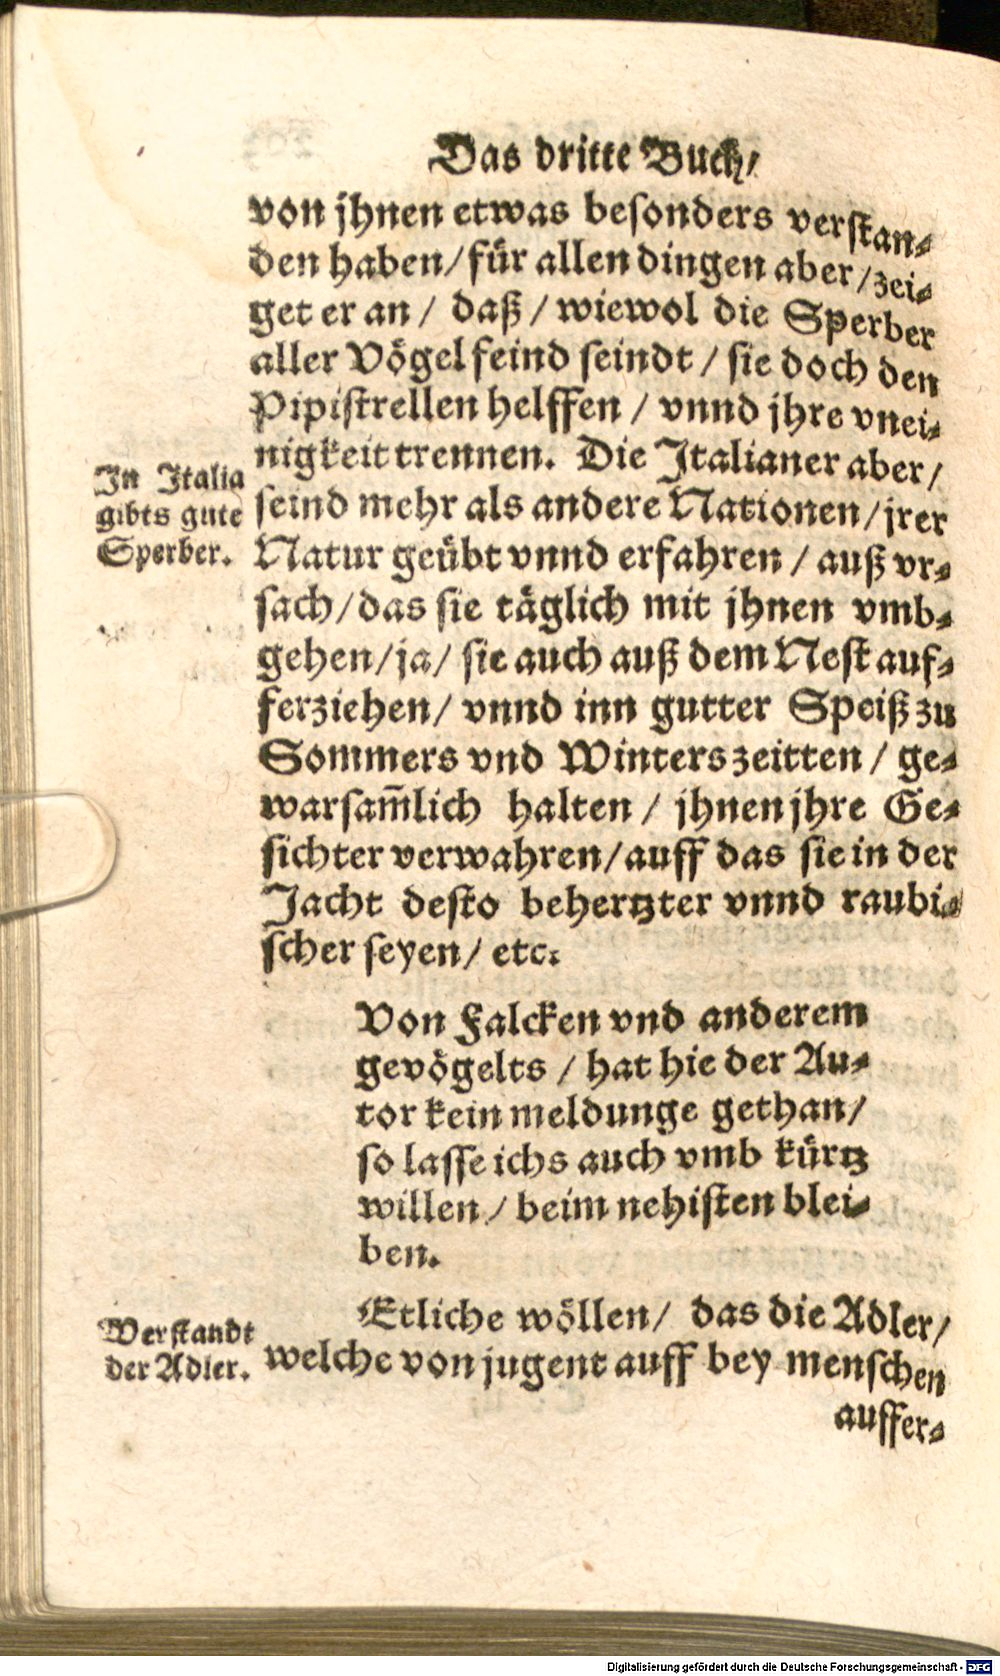 Das dritte Buch/
von jhnen etwas besonders verstan-
den haben/ für allen dingen aber/ zei-
get er an/ daß/ wiewol die Sperber
aller Vögel feind seindt/ sie doch den
Pipistrellen helffen/ vnnd jhre vnei-
nigkeit trennen. Die Italianer aber/
seind mehr als andere Nationen/ jrer
Natur geübt vnnd erfahren/ auß vr-
sach/ das sie täglich mit jhnen vmb-
gehen/ ja/ sie auch auß dem Nest auf-
ferziehen/ vnnd inn gutter Speiß zu
Sommers vnd Winters zeitten/ ge-
warsam̃lich halten/ jhnen jhre Ge-
sichter verwahren/ auff das sie in der
Jacht desto behertzter vnnd raubi-
scher seyen/ etc.
In Italia
gibts gute
Sperber.
Von Falcken vnd anderem
gevögelts/ hat hie der Au-
tor kein meldunge gethan/
so lasse ichs auch vmb kürtz
willen/ beim nehisten blei-
ben.
Etliche wöllen/ das die Adler/
welche von jugent auff bey menschen
Verstandt
der Adler.
auffer-
Digitalisierung gefördert durch die Deutsche Forschungsgemeinschaft - DFG